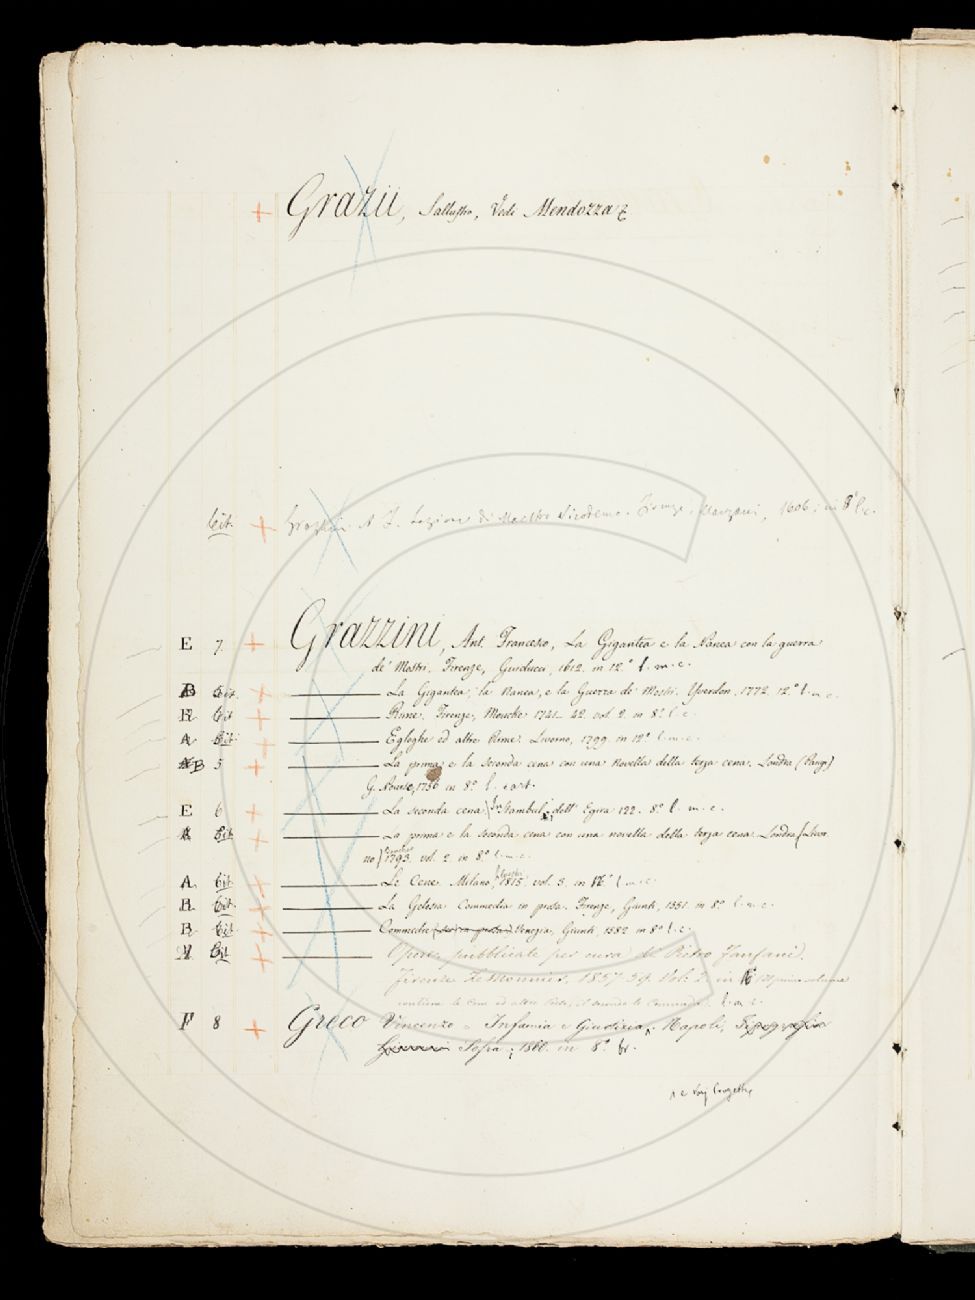 + Grazii, Sallustio, Vedi Mendozza
Cit. + Grazzini A. F. Lezione di Maestro Nicodemo. Firenze, Marzani, 1606, in 8° l. c.
E 7 + Grazzini, Ant. Francesco, La Gigantea e la Nanea con la guerra
de' Mostri. Firenze, Guiducci, 1612. in 12° l. m. c.
B Cit. + La Gigantea, la Nanea, e la Guerra de' Mostri. Yverdon, 1772. 12° l. m. c.
Cit + Rime. Firenze, Moucke 1741-42. vol. 2. in 8° l. c.
A Cit + Egloghe ed altre Rime. Livorno, 1799. in 12° l. m. c.
B 5 + La prima e la seconda cena con una novella della terza cena. Londra (Parigi)
G. Nourse, 1756 in 8° l. c. art.
E 6 + La seconda cena, In Stambul, dell' Egira 122. 8° l. m. c.
A Cit. + La prima e la seconda cena con una novella della terza cena. Londra (Livor
no) 1793. vol. 2. in 8° l. m. c.
A Cit. + Le Cene. Milano, 1815. vol. 3. in 16° l. m. c.
Cit. + La Gelosia Commedia in prosa. Firenze, Giunti, 1551. in 8° l. m. c.
Cit + Commedie Venezia, Giunti, 1582 in 8° l. c.
Cit + Opere pubblicate per cura di Pietro Fanfani.
Firenze Le Monnier, 1857-59. Vol. 2. in 16 (Il primo volume
contiene le Cene ed altre Prose, il secondo le Commedie). l. m. c.
F 8 + Greco Vincenzo - Infamia e Giustizia ^. Napoli, Tipografia
1860. in 8° br.